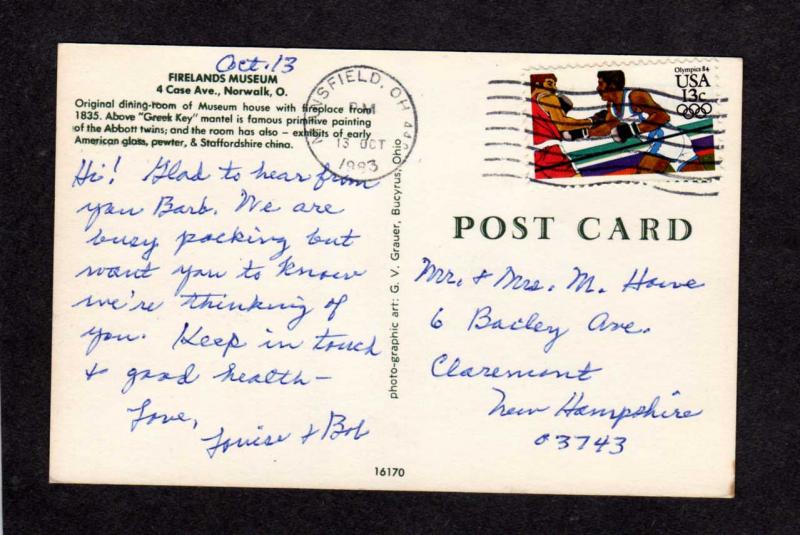 Oct. 13
FIRELANDS MUSEUM
4 Case Ave., Norwalk, O.
Original dining-room of Museum house with fireplace from
1835. Above "Greek Key" mantel is famous primitive painting
of the Abbott twins; and the room has also – exhibits of early
American glass, pewter, & Staffordshire china.
Hi! Glad to hear from
you Barb. We are
busy packing but
want you to know
we're thinking of
you. Keep in touch
& good health –
Love,
Louise & Bob
MANSFIELD, OH
PM
13 OCT
1983
photo-graphic art: G. V. Grauer, Bucyrus, Ohio
16170
Olympics 84
USA
13c
POST CARD
Mr. & Mrs. M. Howe
6 Bailey Ave.
Claremont
New Hampshire
03743